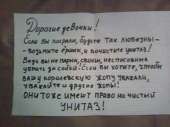 Дорогие девочки!
Если вы посрали, будьте так любезны-
возьмите ёршик, и почистите унитаз!
Ведь вы не парни, свиньи, неспособные
убрать за собой! Если вы хотите, чтобы
вашу королевскую жопу уважали,
уважайте и другие жопы!
ОНИ ТОЖЕ ИМЕЮТ ПРАВО НА ЧИСТЫЙ
УНИТАЗ!